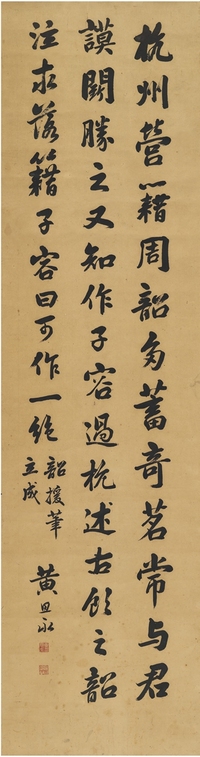 杭州營籍周韶多蓄奇茗常与君
謨鬭勝之又知作子容過杭述古飲之韶
泣求落籍子容曰可作一絶韶援筆
立成
黄思永